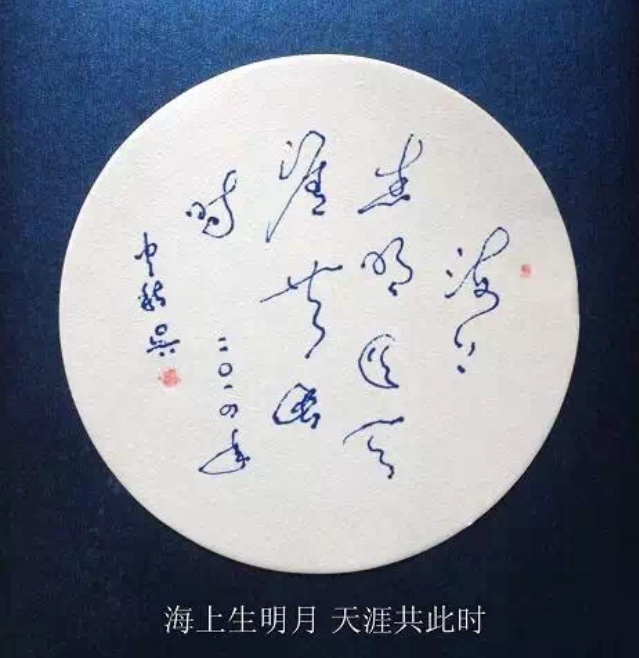 海上
生明月天
涯共此
时 二〇一四年
中秋 吴
海上生明月 天涯共此时